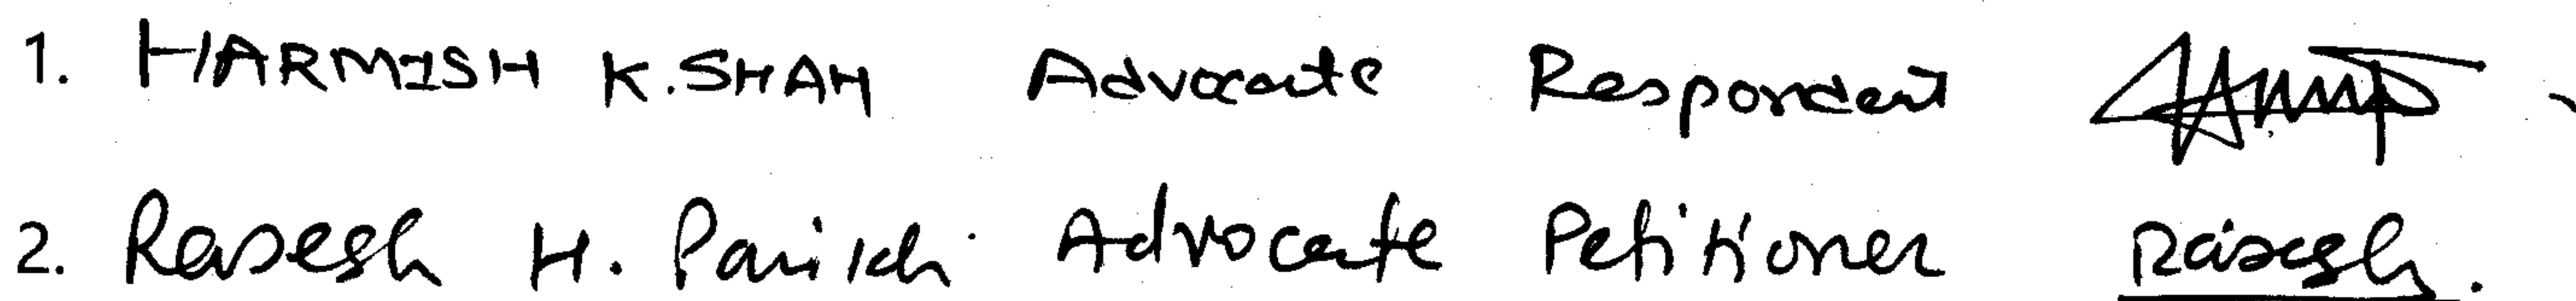 1. HARMISH K. SHAH Advocate Respondent
2. Rasesh H. Parikh Advocate Petitioner Rasesh.